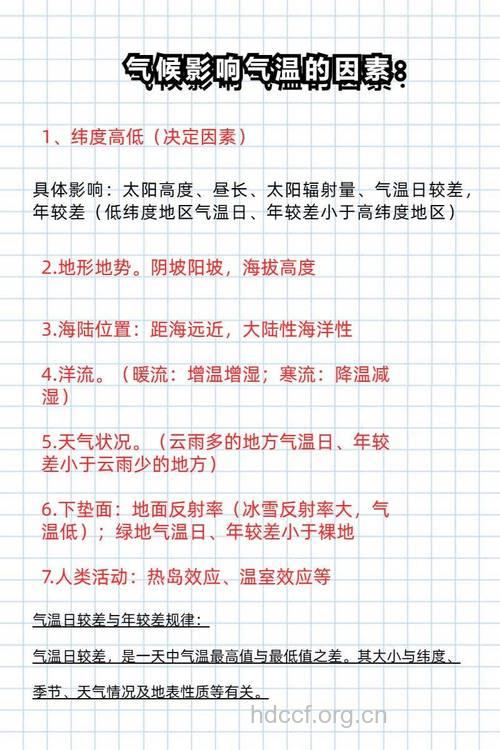 气候影响气温的因素8
1、纬度高低（决定因素）
具体影响：太阳高度、昼长、太阳辐射量、气温日较差，
年较差（低纬度地区气温日、年较差小于高纬度地区）
2.地形地势。阴坡阳坡，海拔高度
3.海陆位置：距海远近，大陆性海洋性
4.洋流。（暖流：增温增湿；寒流：降温减
湿）
5.天气状况。（云雨多的地方气温日、年较
差小于云雨少的地方）
6.下垫面：地面反射率（冰雪反射率大，气
温低）；绿地气温日、年较差小于裸地
7.人类活动：热岛效应、温室效应等
气温日较差与年较差规律：
气温日较差，是一天中气温最高值与最低值之差。其大小与纬度、
季节、天气情况及地表性质等有关。
hdccf.org.cn